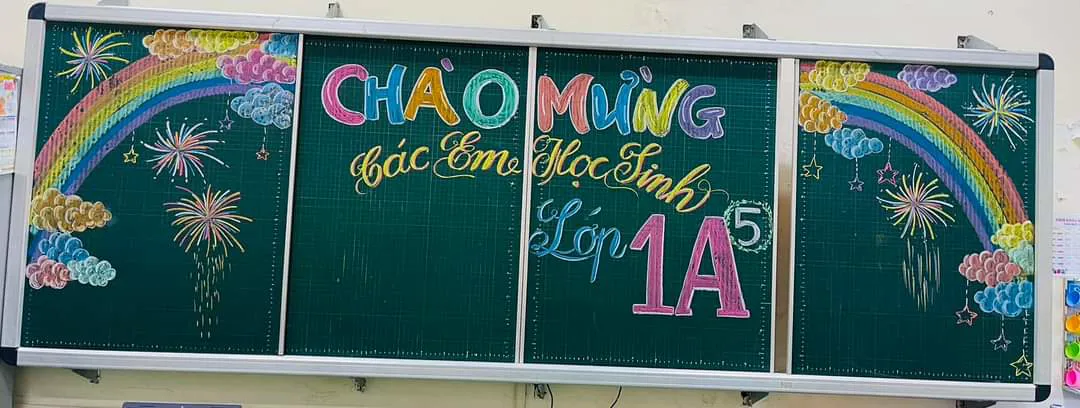 CHÀO MỪNG
Các Em Học Sinh
Lớp 1A5